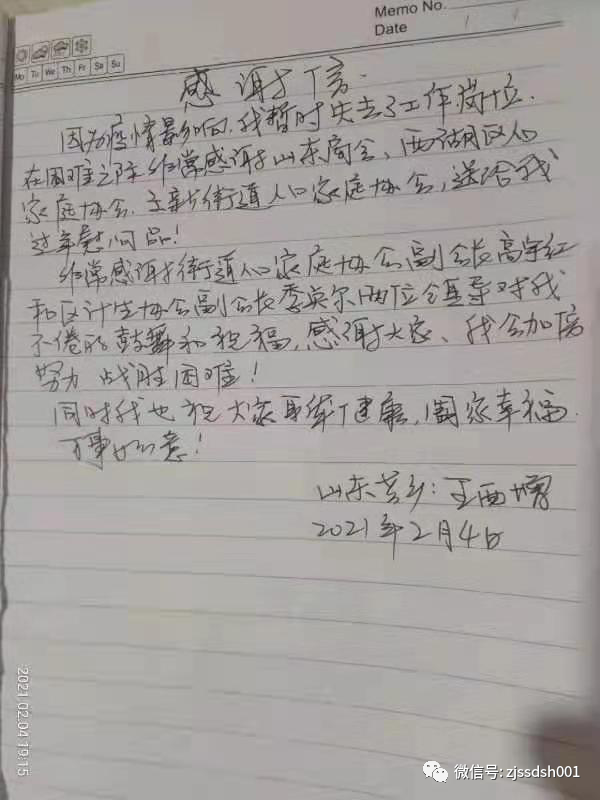 Memo No.
Date
Mo Tu We Th Fr Sa Su
感谢信
因为疫情影响,我暂时失去了工作岗位.
在困难之际非常感谢山东商会、西湖区人口
家庭协会、街道人口家庭协会,送给我
过年慰问品!
非常感谢街道人口家庭协会副会长高宇红
和区计生协会副会长李英尔两位领导对我
不倦的鼓舞和祝福,感谢大家、我会加倍
努力 战胜困难!
同时我也祝大家身体健康,阖家幸福.
万事如意!
山东老乡:王西
2021年2月4日
2021.02.04 19:15
微信号: zjssdsh001